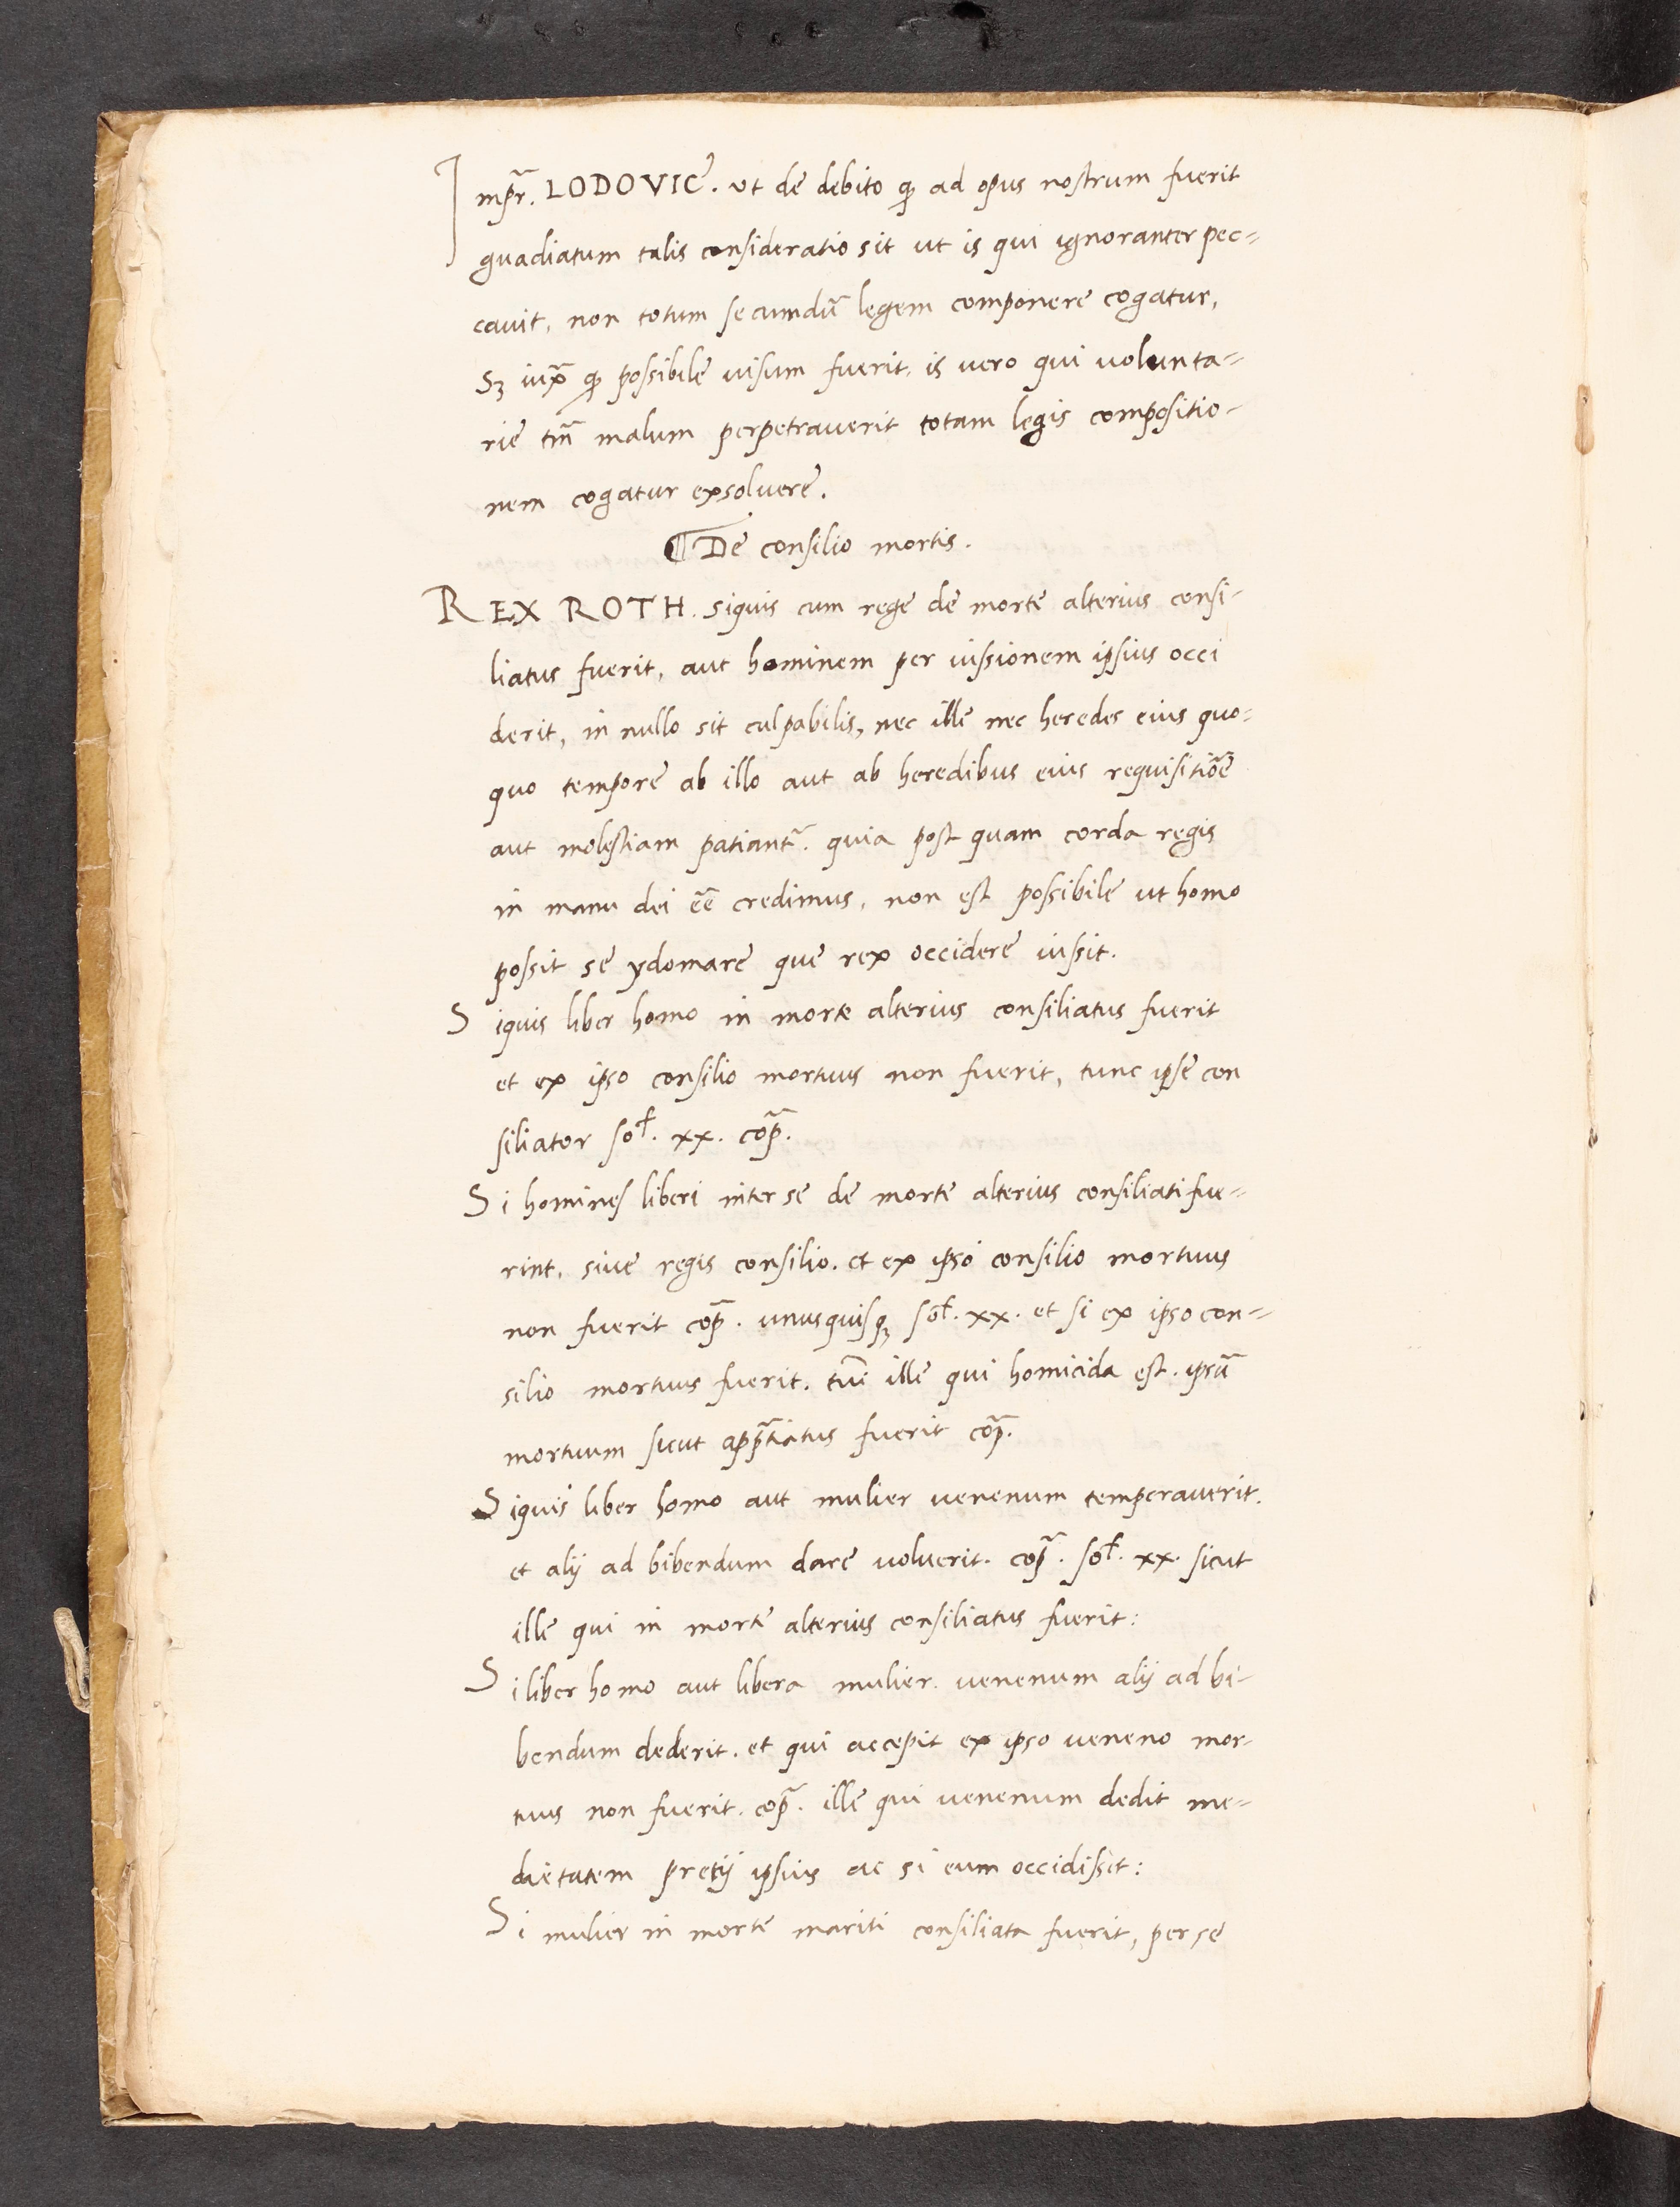 Imp̃r. LODOVIC̃. ut de debito ꝙ ad opus nostrum fuerit
guadiatum talis consideratio sit ut is qui ignoranter pec=
cavit, non totum secumdũ legem componere cogatur,
Sꝫ iux̃ ꝙ possibile visum fuerit, is vero qui volunta=
rie tm̃ malum perpetraverit totam legis compositio-
nem cogatur exsolvere.
¶ De consilio mortis.
REX ROTH. siquis cum rege de morte alterius consi-
liatus fuerit, aut hominem per iussionem ipsius occi
derit, in nullo sit culpabilis, nec ille nec heredes eius quo-
quo tempore ab illo aut ab heredibus eius requisitiõe
aut molestiam patiant̃. quia post quam corda regis
in manu dei ẽe credimus, non est possibile ut homo
possit se ydomare que rex occidere iussit.
Siquis liber homo in morte alterius consiliatus fuerit
et ex ipso consilio mortuus non fuerit, tunc ipse con
siliator soł. xx. cõp.
Si homines liberi inter se de morte alterius consiliati fue=
rint, sive regis consilio. et ex ipso consilio mortuus
non fuerit cõp. unusquisqꝫ soł. xx. et si ex ipso con=
silio mortuus fuerit. tũc ille qui homicida est. ipsũ
mortuum sicut app̃tiatus fuerit cõp.
Siquis liber homo aut mulier venenum temperaverit.
et alij ad bibendum dare voluerit. cõp. soł. xx. sicut
ille qui in morte alterius consiliatus fuerit:
Si liber homo aut libera mulier. venenum alij ad bi-
bendum dederit. et qui accepit ex ipso veneno mor-
tuus non fuerit. cõp. ille qui venenum dedit me=
dietatem pretij ipsius ac si eum occidisset:
Si mulier in morte mariti consiliata fuerit, per se